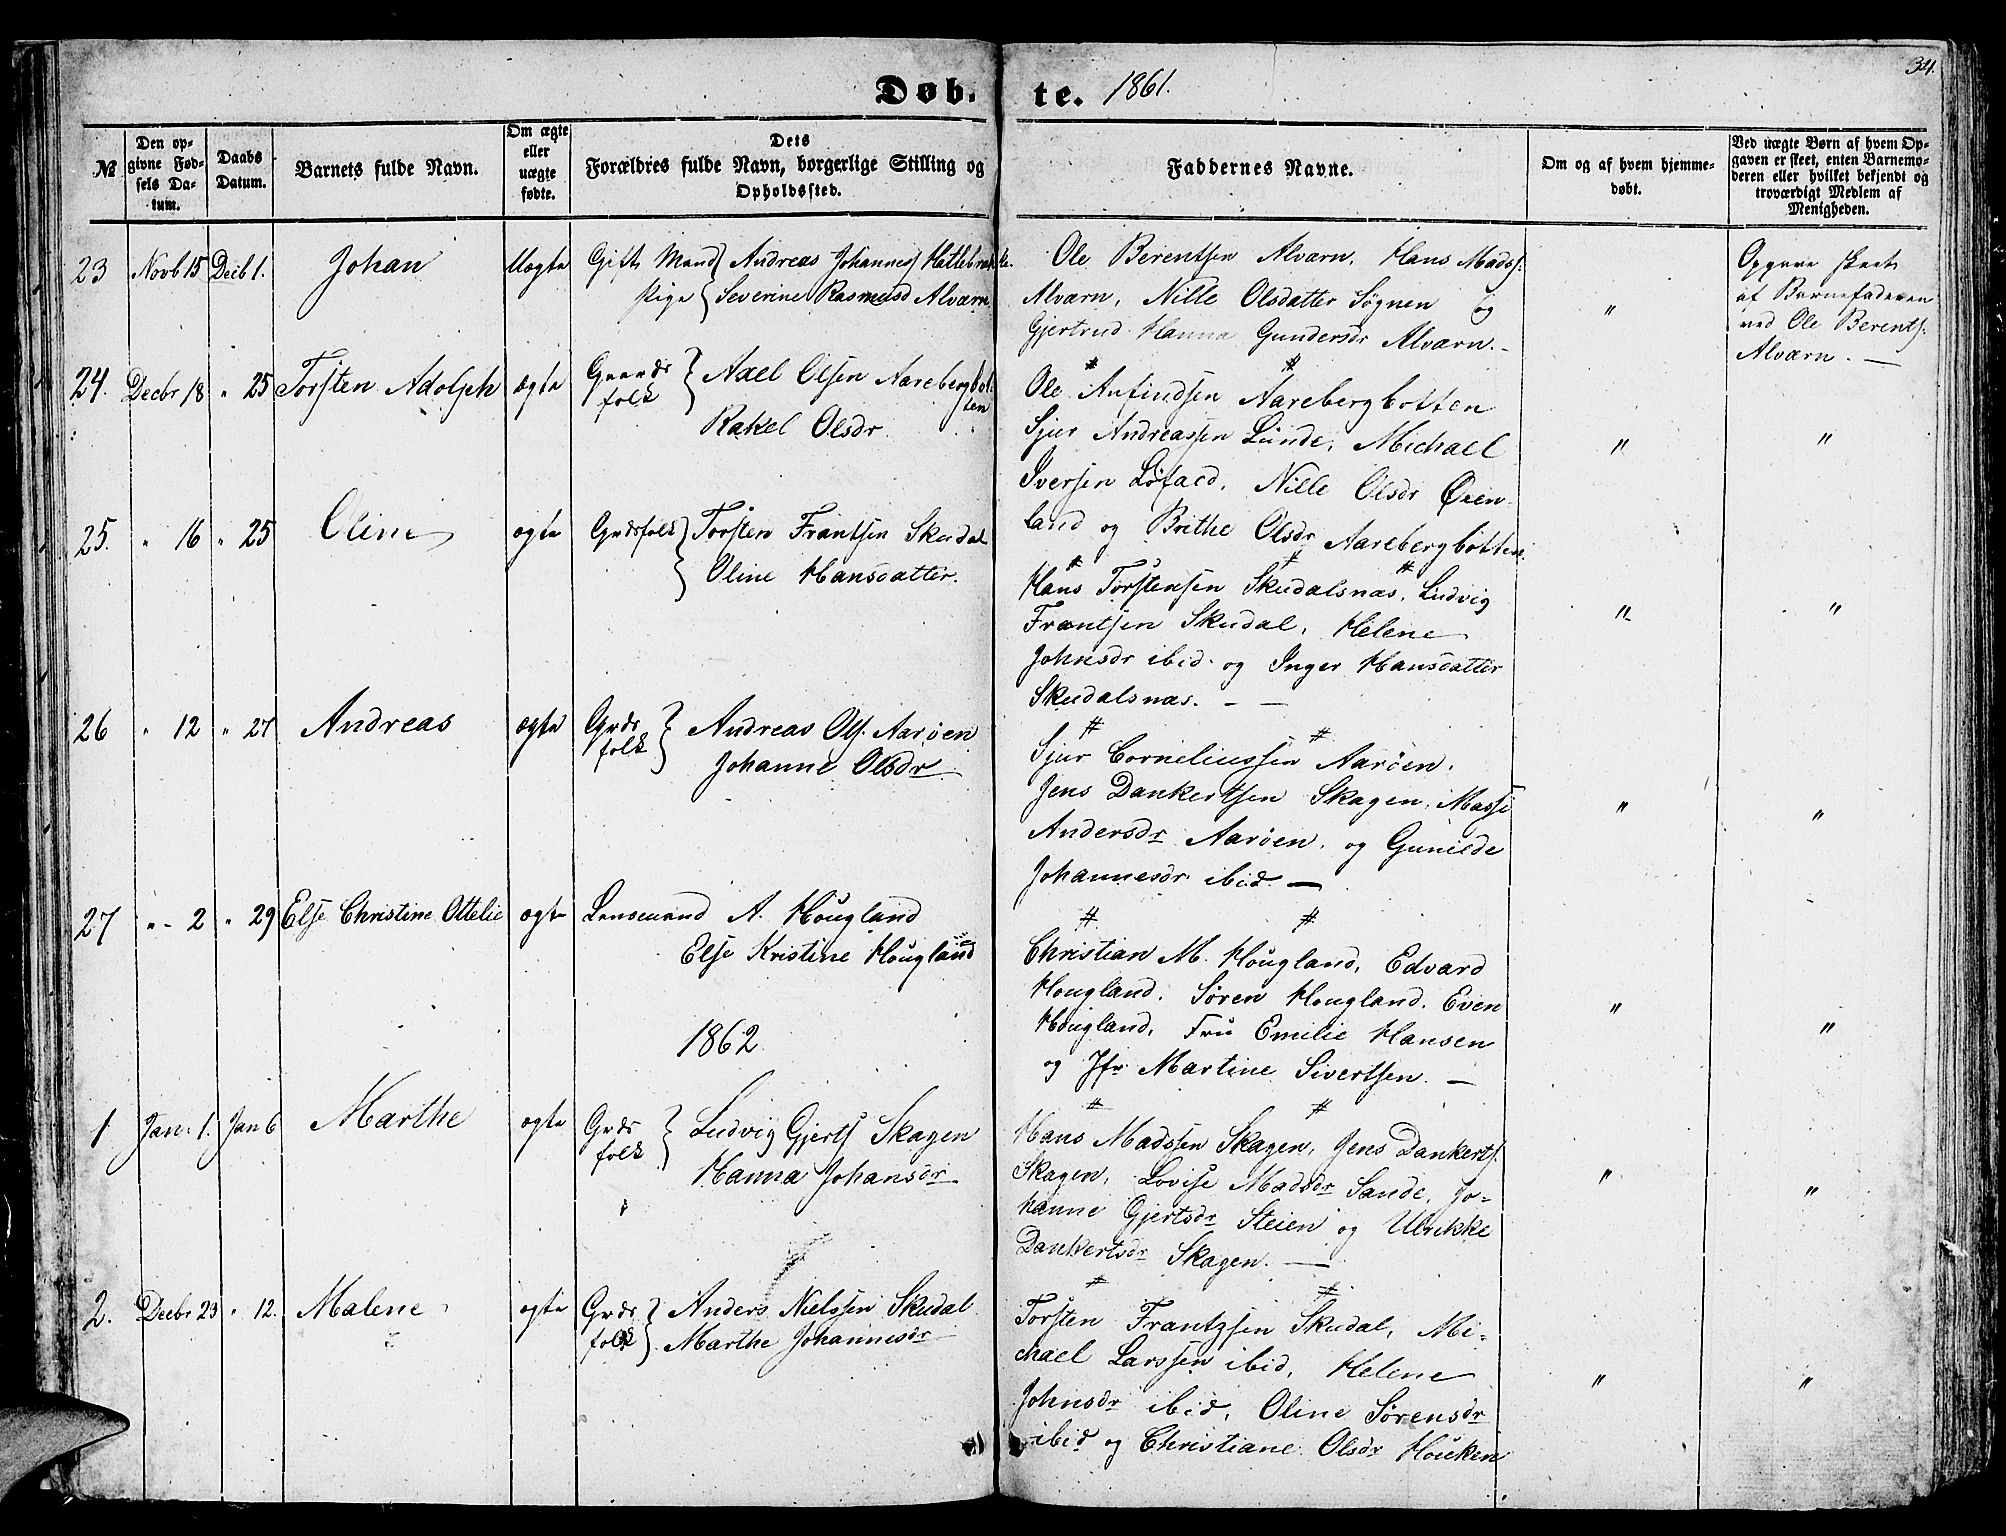 Døb. te. 1861.
34.
№
Den opgivne Fødsels Datum.
Daabs Datum.
Barnets fulde Navn.
Om ægte eller uægte fødte.
Dets Forældres fulde Navn, borgerlige Stilling og Opholdssted.
Faddernes Navne.
Om og af hvem hjemmedøbt.
Ved uægte Børn af hvem Opgaven er skeet, enten Barnemoderen eller hvilket bekjendt og troværdigt Medlem af Menigheden.
23 Novb 15 Decb 1. Johan Uægte Gift Mand Andreas Johannes Hattebræk
Pige Severine Rasmusd Alværn
Ole Berentsen Alværn, Hans Madss:
Alværn, Nille Olsdatter Søgnen og
Gjertrud Hanna Gundersdr Alværn. -
"
Opgave skeet
af Barnefaderen
ved Ole Berents:
Alværn. —
24. Decbr 18 " 25 Torsten Adolph ægte Gaards
folk
Axel Olsen Aarebergbot
ten
Rakel Olsdr
Ole Anfindsen Aarebergbotten
Sjur Andreassen Lunde, Michael
Iversen Løfald, Nille Olsdr Øien-
land og Brithe Olsdr Aarebergbotten
" "
25. " 16 " 25 Oline ægte Grdsfolk Torsten Frantsen Skudal
Oline Hansdatter.
Hans Torstensen Skudalsnæs, Ludvig
Frantsen Skudal, Helene
Johnsdr ibid. og Inger Hansdatter
Skudalsnæs. - -
" "
26 " 12 " 27 Andreas ægte Grds
folk
Andreas Ols. Aarøen
Johanne Olsdr
Sjur Corneliussen Aarøen.
Jens Dankertsen Skagen, Massi
Andersdr Aarøen, og Gunilde
Johannesdr ibid —
" "
27 " - 2 " 29 Else Christine Ottelie ægte Lensmand A. Hougland
Else Kristine Hougland
Christian M. Hougland, Edvard
Hougland. Søren Hougland. Even
Hougland, Fru Emilie Hansen
og Jfr Martine Sivertsen. —
" "
1862
1 Jan. 1. Jan 6 Marthe ægte Grds
folk
Ludvig Gjerts Skagen
Hanna Johansdr
Hans Madssen Skagen, Jens Dankerts.
Skagen, Lovise Madsdr Sande, Jo-
hanne Gjertsdr Steien og Ulrikke
Dankertsdr Skagen. —
" "
2. Decbr 23 " 12. Malene ægte Grds
folk
Anders Nielssen Skudal
Marthe Johannesdr
Torsten Frantzsen Skudal, Mi-
chael Larssen ibid, Helene
Johnsdr ibid, Oline Sørensdr
ibid og Christiane Olsdr Houken
" "